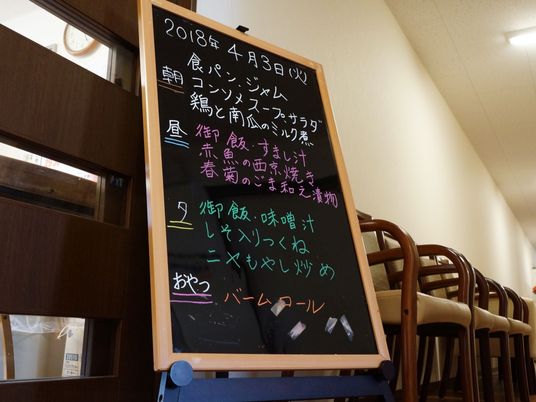 2018年4月3日(火)
朝
食パン・ジャム
コンソメスープサラダ
鶏と南瓜のミルク煮
昼
御飯・すまし汁
赤魚の西京焼き
春菊のごま和え漬物
夕
御飯・味噌汁
しそ入りつくね
ニラもやし炒め
おやつ
バームロール